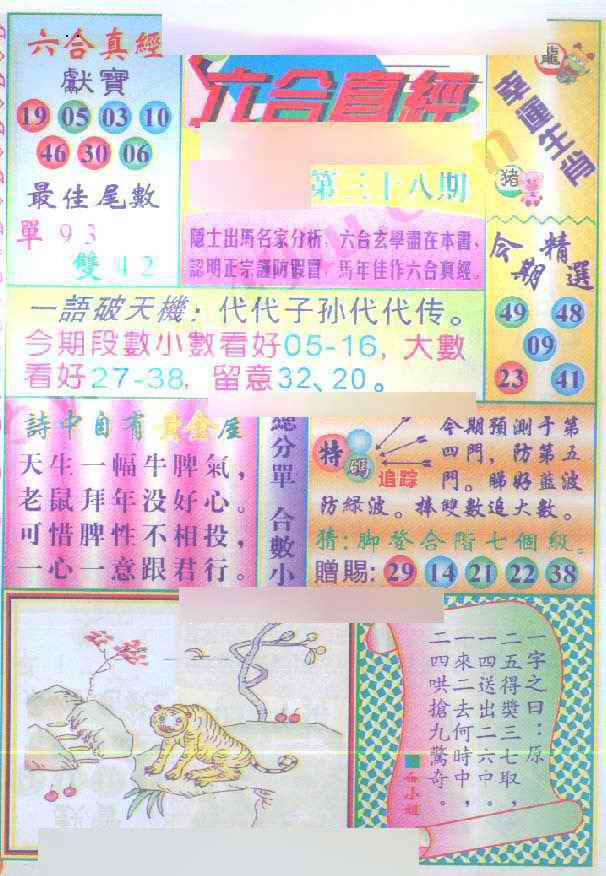 六合真經
獻寶
19 05 03 10
46 30 06
最佳尾數
單 9 3
雙 4 2
六合真經
第三十八期
隱士出馬名家分析，六合玄學盡在本書、
認明正宗謹防假冒，馬年佳作六合真經。
龍
幸運生肖
豬
今期精選
49 48
09
23 41
一語破天機：代代子孙代代传。
今期段數小數看好05-16，大數
看好27-38，留意32、20。
詩中自有黃金屋
天生一幅牛脾氣，
老鼠拜年没好心。
可惜脾性不相投，
一心一意跟君行。
總分單 合數小
特碼
追踪
今期預測于第
四門，防第五
門。睇好藍波
防緑波。捧雙數追大數。
猜：脚登合階七個級。
贈賜：29 14 21 22 38
一字之曰：原
二五得獎三七取，
一四送出二六中。
一來二去何時中，
二四哄搶九驚奇。
小姐